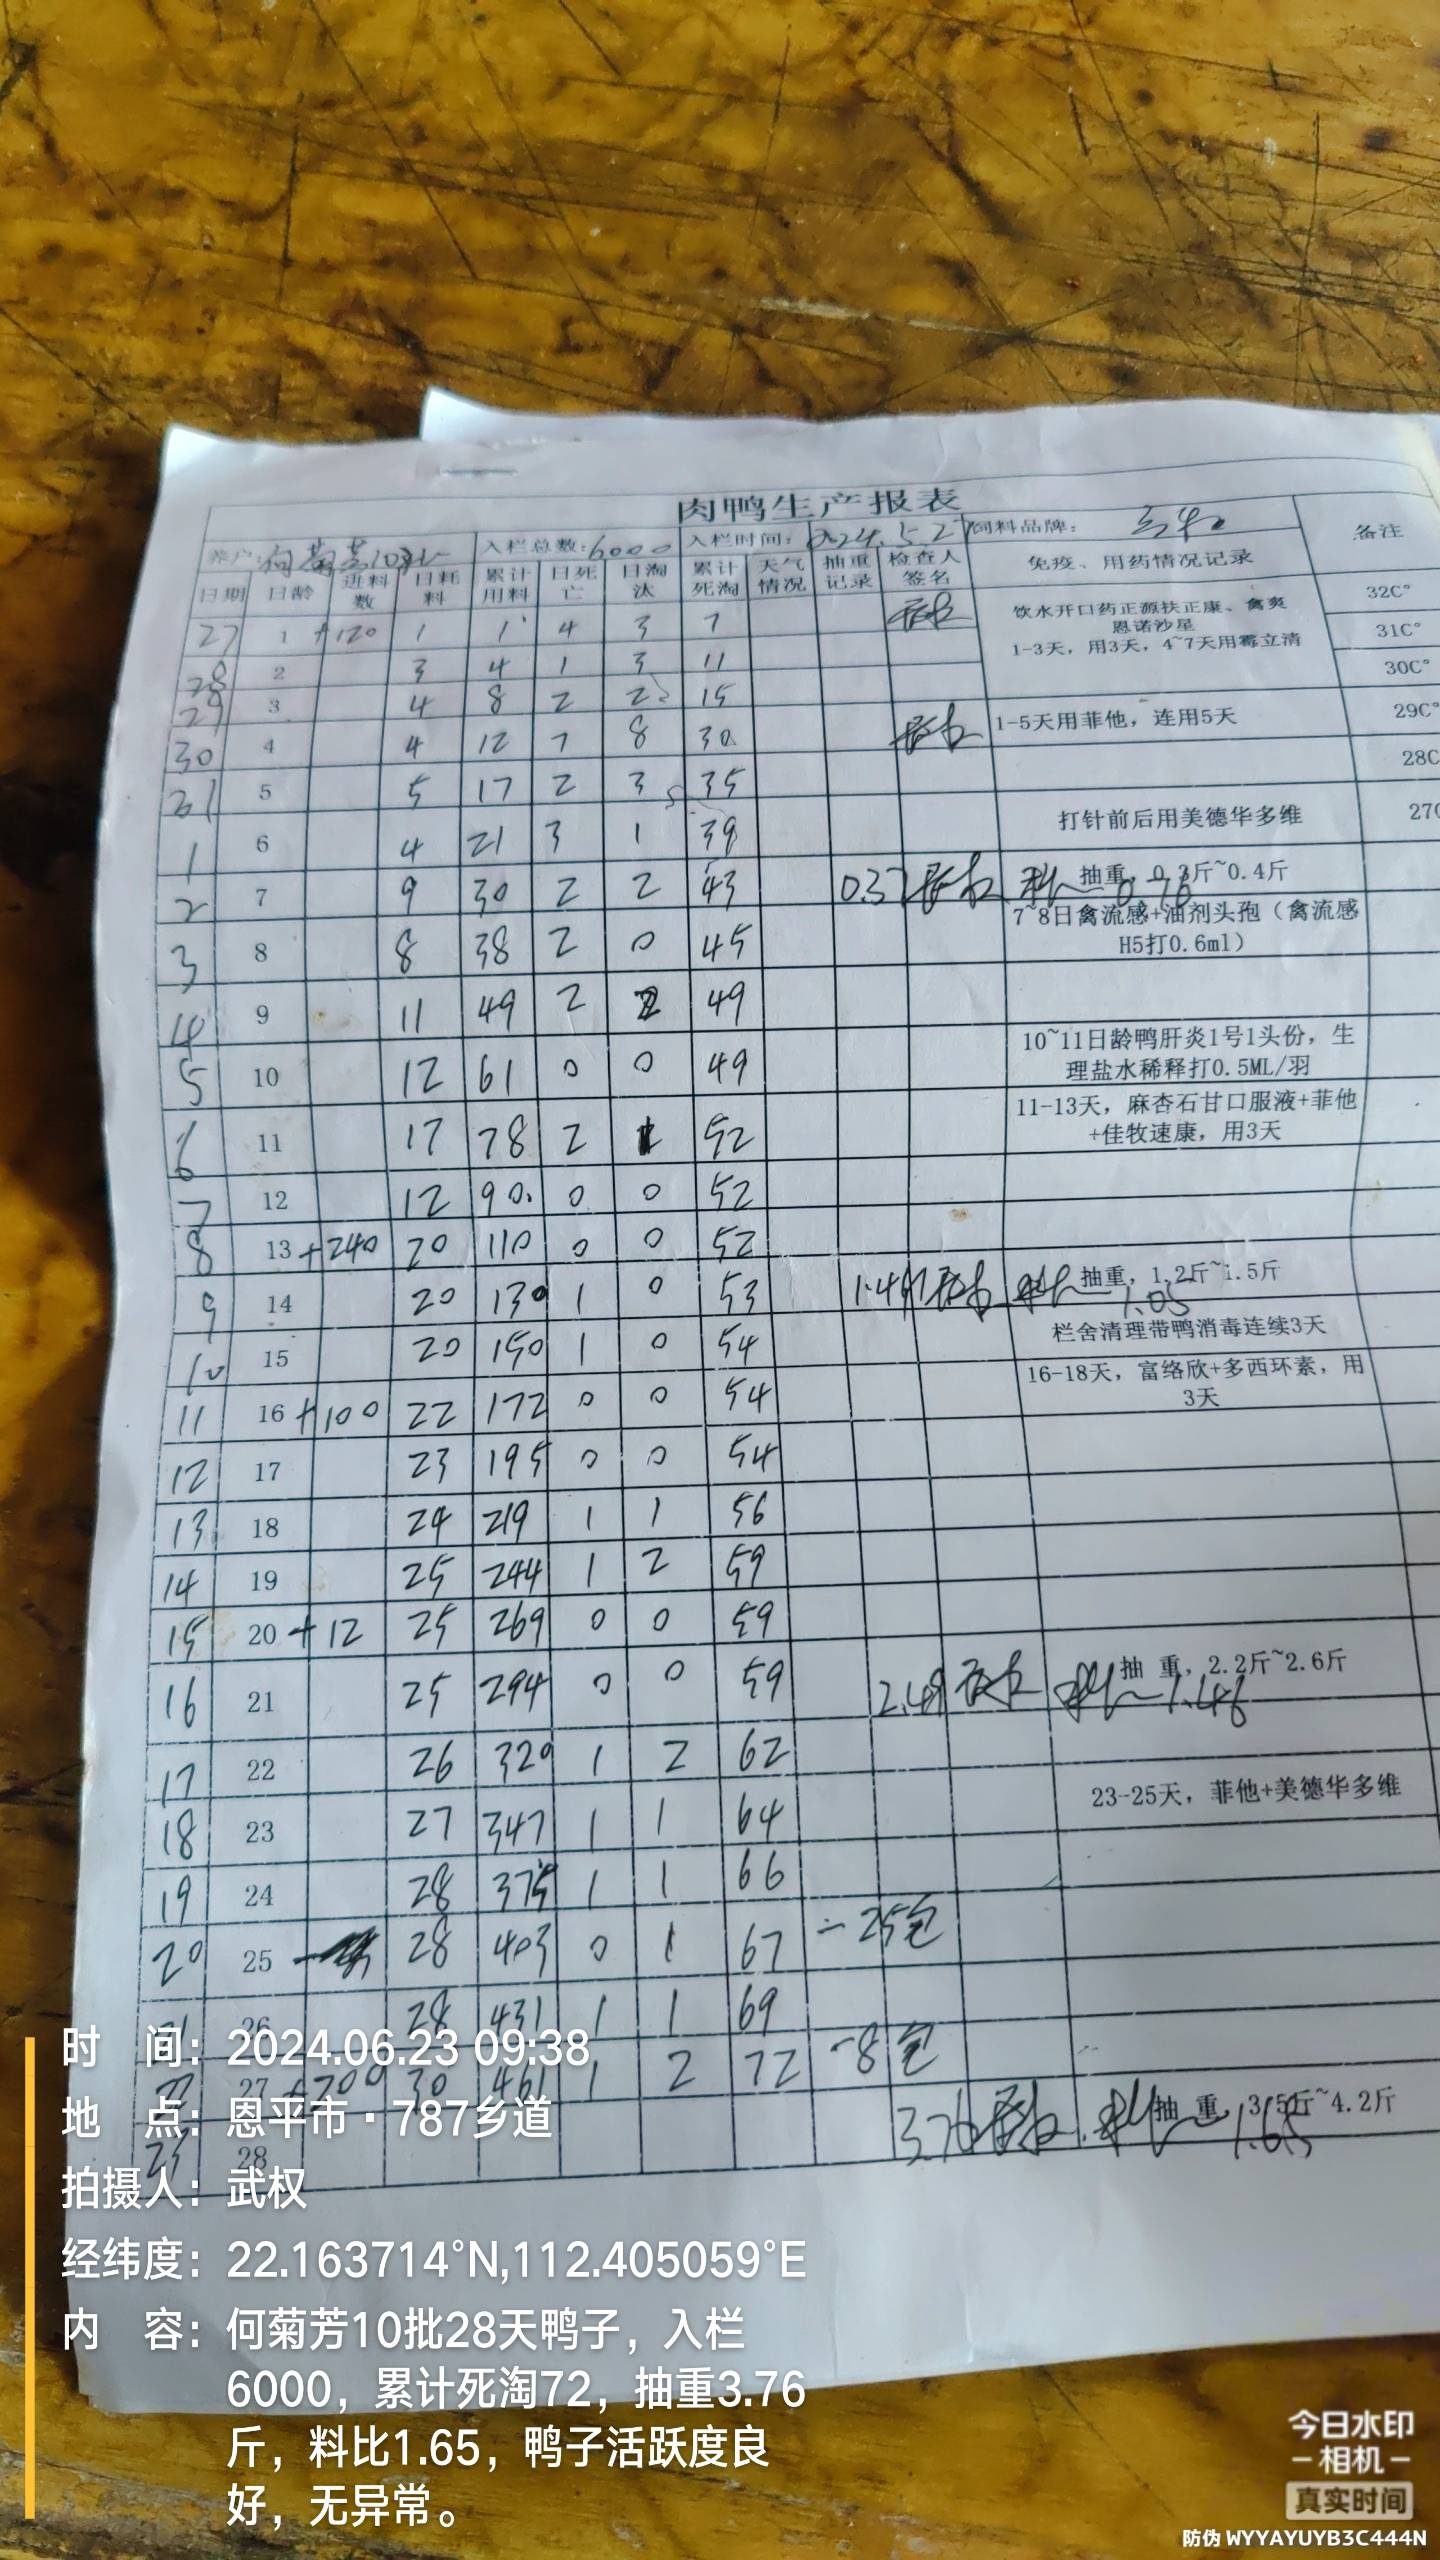 肉鸭生产报表
养户:何菊芳10批 入栏总数:6000 入栏时间:2024.5.27 饲料品牌: 备注
日期 日龄 进料数 日耗料 累计用料 日死亡 日淘汰 累计死淘 天气情况 抽重记录 检查人签名 免疫、用药情况记录
27 1 +120 1 1 4 3 7 饮水开口药正源扶正康、禽炎恩诺沙星 32C°
1-3天，用3天，4~7天用霉立清 31C°
28 2 3 4 1 3 11 30C°
29 3 4 8 2 2 15 1-5天用菲他，连用5天 29C°
30 4 4 12 7 8 30
31 5 5 17 2 3 35 28C
1 6 4 21 3 1 39 打针前后用美德华多维 27C
2 7 9 30 2 2 43 0.37 抽重，0.3斤~0.4斤 料比 0.76
3 8 8 38 2 0 45 7~8日禽流感+油剂头孢（禽流感H5打0.6ml）
4 9 11 49 2 2 49
5 10 12 61 0 0 49 10~11日龄鸭肝炎1号1头份，生理盐水稀释打0.5ML/羽
6 11 17 78 2 1 52 11-13天，麻杏石甘口服液+菲他+佳牧速康，用3天
7 12 12 90. 0 0 52
8 13 +240 20 110 0 0 52
9 14 20 130 1 0 53 1.49 抽重，1.2斤~1.5斤 料比 1.05
10 15 20 150 1 0 54 栏舍清理带鸭消毒连续3天
11 16 +100 22 172 0 0 54 16-18天，富络欣+多西环素，用3天
12 17 23 195 0 0 54
13 18 24 219 1 1 56
14 19 25 244 1 2 59
15 20 +12 25 269 0 0 59
16 21 25 294 0 0 59 2.49 抽 重，2.2斤~2.6斤 料比 1.46
17 22 26 320 1 2 62
18 23 27 347 1 1 64 23-25天，菲他+美德华多维
19 24 28 375 1 1 66
20 25 28 403 0 1 67 -25包
21 26 28 431 1 1 69
22 27 +200 30 461 1 2 72 -8包
23 28 3.76 抽 重，3.5斤~4.2斤 料比 1.65
时 间：2024.06.23 09:38
地 点：恩平市·787乡道
拍摄人：武权
经纬度：22.163714°N,112.405059°E
内 容：何菊芳10批28天鸭子，入栏
6000，累计死淘72，抽重3.76
斤，料比1.65，鸭子活跃度良
好，无异常。
今日水印
-相机-
真实时间
防伪 WYYAYUYB3C444N